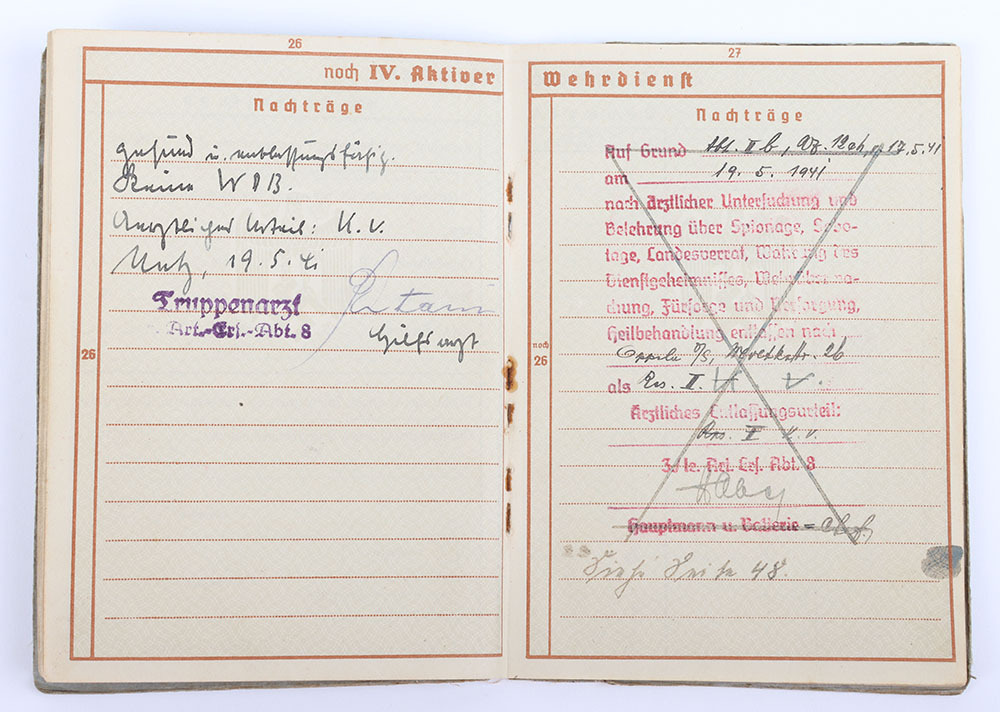 26
noch IV. Aktiver
Nachträge
gesund u. entlassungsfähig.
Keine WDB.
Aerztliches Urteil: K.V.
Metz, 19.5.41
Truppenarzt
Art.-Ers.-Abt. 8
Hilfsarzt
26
27
Wehrdienst
Nachträge
Auf Grund Abt. II b, Az. 12 v. 17.5.41
am 19.5.1941
nach ärztlicher Untersuchung und
Belehrung über Spionage, Sabo-
tage, Landesverrat, Wahrung des
Dienstgeheimnisses, Wehrüberwa-
chung, Fürsorge und Versorgung,
Heilbehandlung entlassen nach
Oppeln O/S, 26
als Res. II
Ärztliches Entlassungsurteil:
Res. II K.V.
Art. Ers. Abt. 8
Hauptmann u. Batterie =
Siehe Seite 48.
noch
26